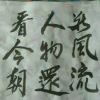 数風流
人物還
看今朝